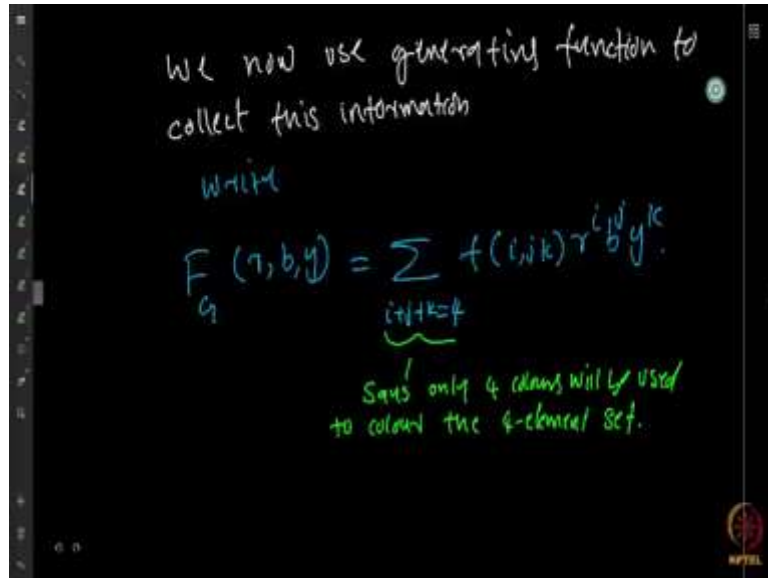 We now use generating function to
collect this information
write
F_G (r, b, y) = ∑ f(i, j, k) r^i b^j y^k.
i+j+k=4
Says only 4 colours will be used
to colour the 4-element set.
NPTEL